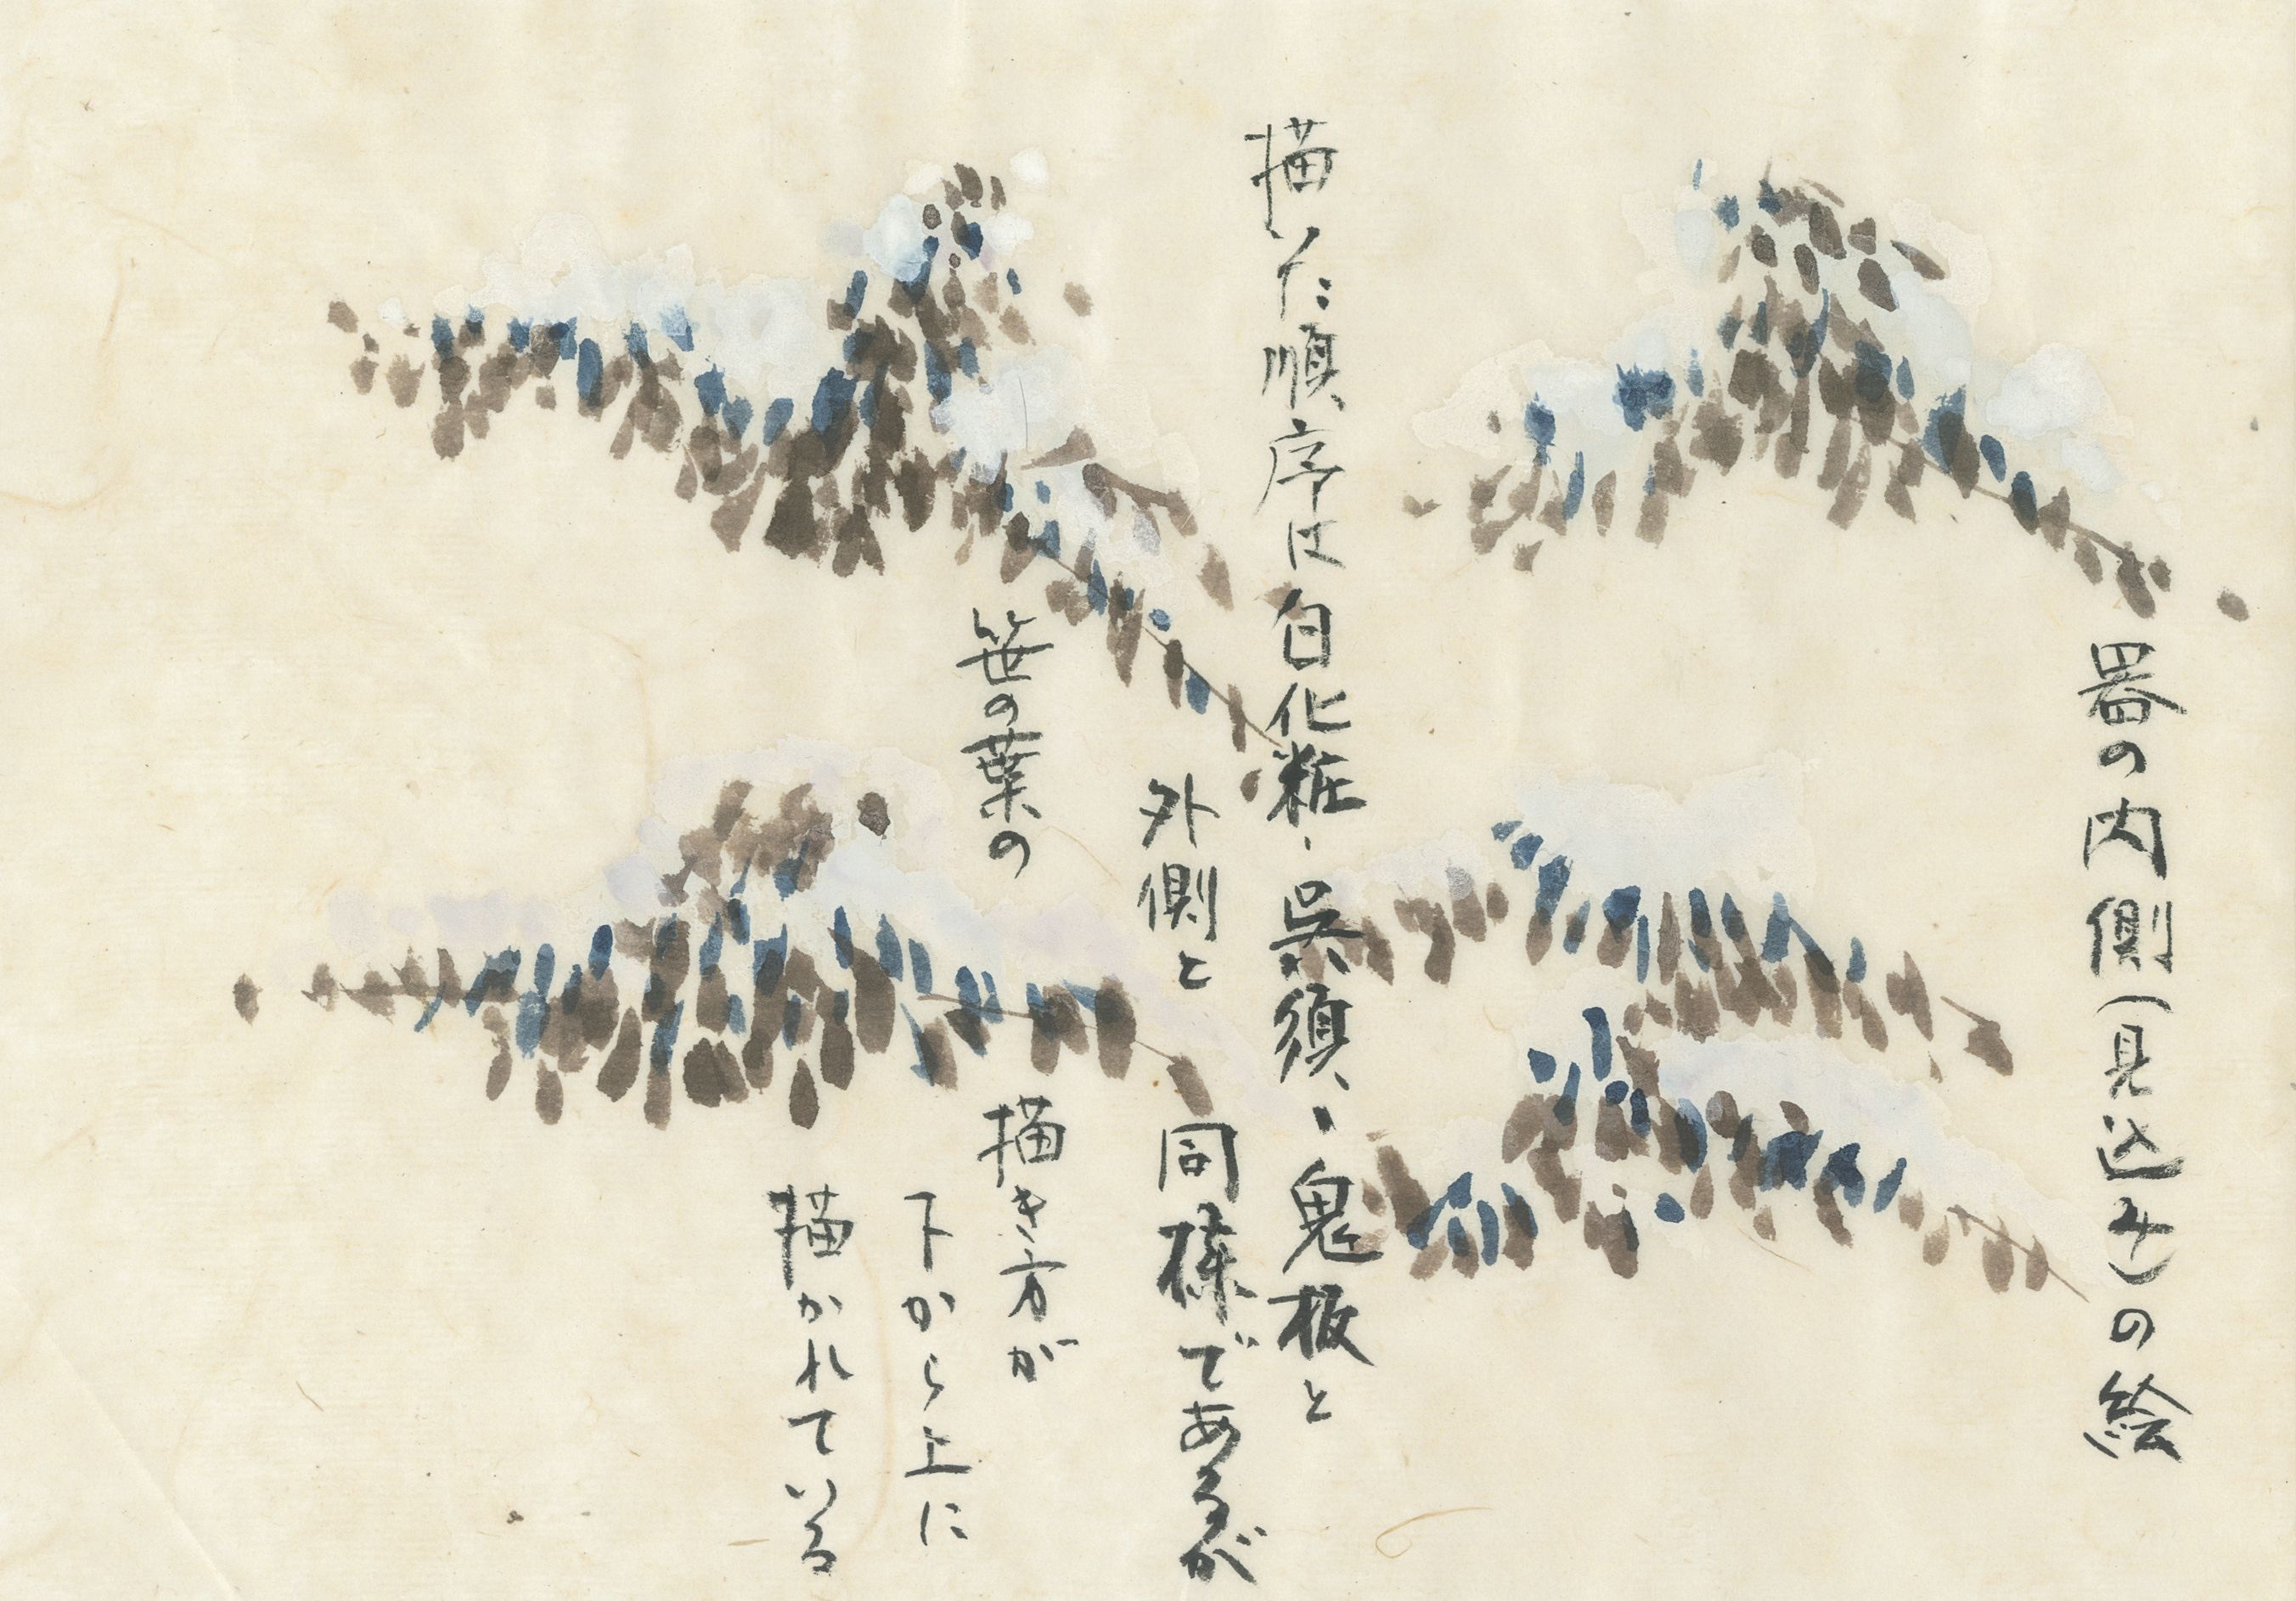 器の内側(見込み)の絵
描いた順序は白化粧、呉須、鬼板と
外側と同様であるが
笹の葉の描き方が
下から上に
描かれている